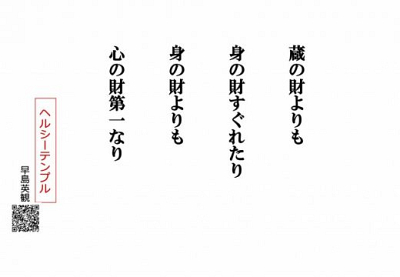 蔵の財よりも
身の財すぐれたり
身の財よりも
心の財第一なり
ヘルシーテンプル
早島英観